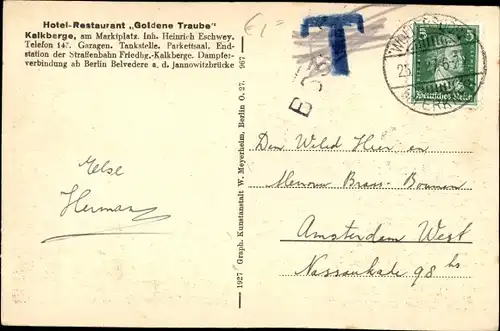 Hotel-Restaurant „Goldene Traube"
Kalkberge, am Marktplatz. Inh. Heinrich Eschwey.
Telefon 147. Garagen. Tankstelle. Parkettsaal. End-
station der Straßenbahn Friedhg.-Kalkberge. Dampfer-
verbindung ab Berlin Belvedere u. d. Jannowitzbrücke
967
1927 Graph. Kunstanstalt W. Meyerheim, Berlin O. 27.
T
B
5 5
Deutsches Reich
Den Weled Heer en
Mevrouw Braas-Bouman
Amsterdam West
Nassaukade 98 hs
Else
Herman